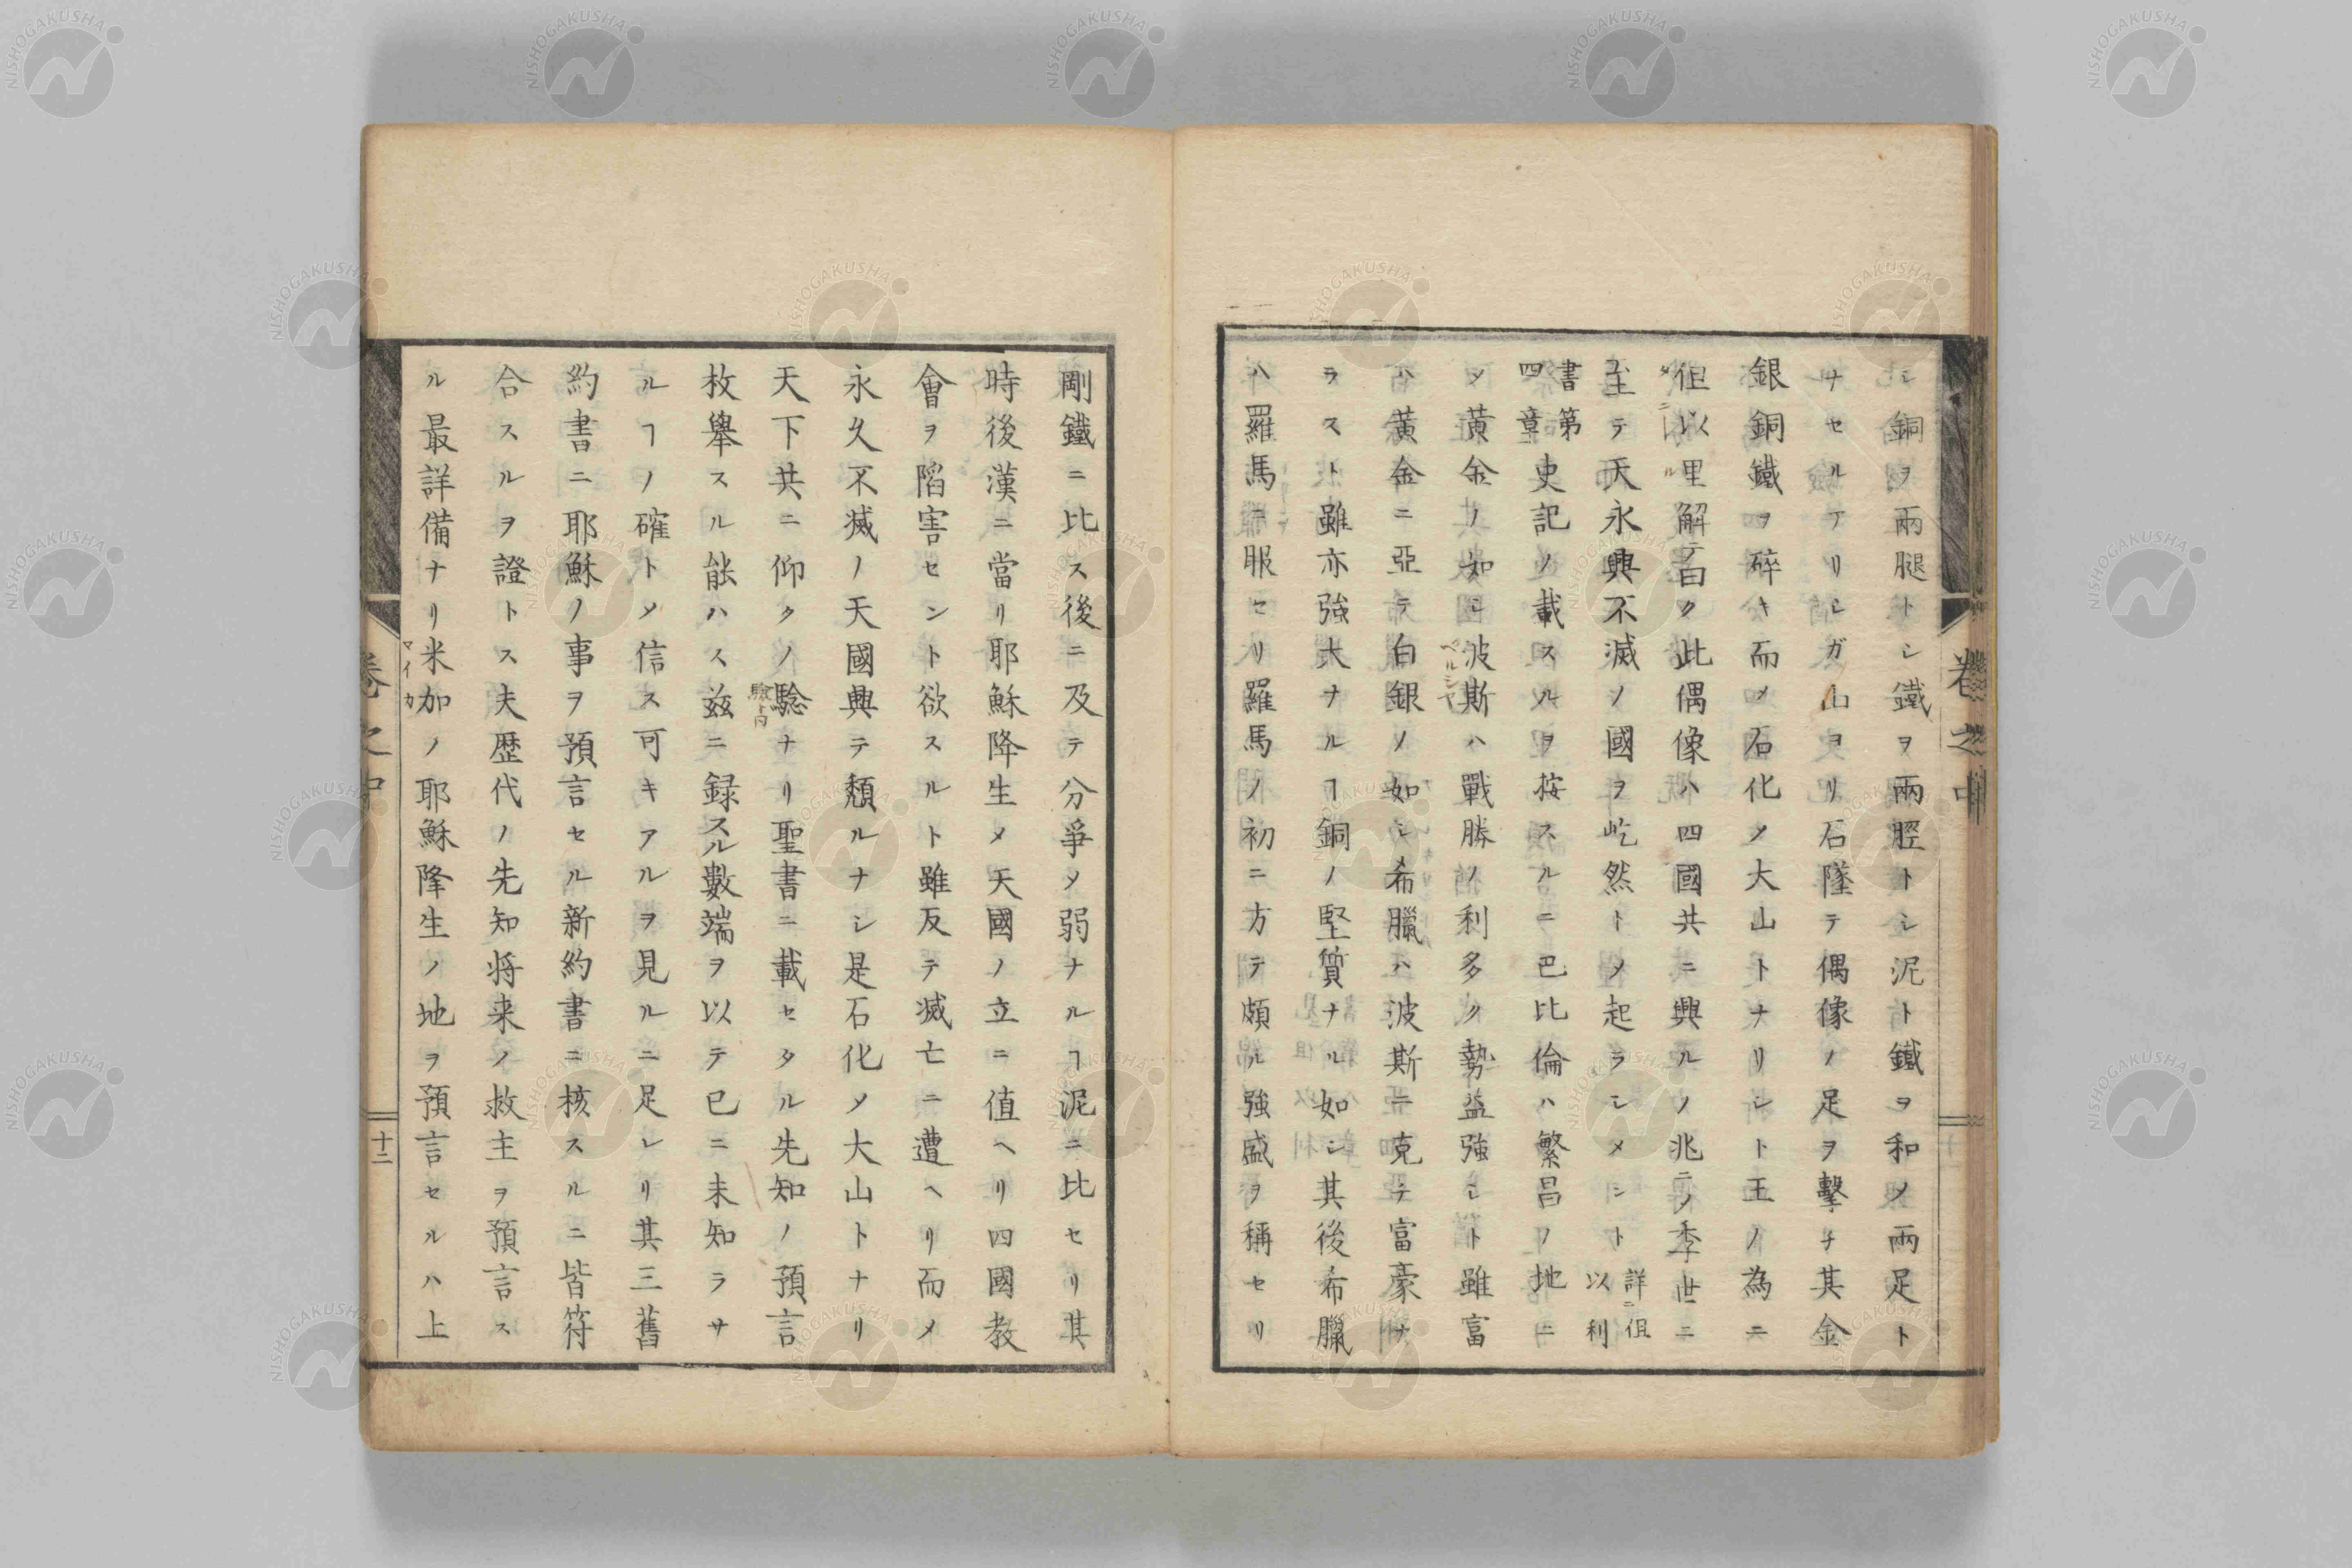 シ銅ヲ兩腿トシ鐵ヲ兩脛トシ泥ト鐵ヲ和メ兩足ト
ナセルアリシガ山ヨリ石墜テ偶像ノ足ヲ擊チ其金
銀銅鐵ヲ碎キ而メ石化メ大山トナリシト王ノ為ニ
但以里解テ曰ク此偶像ハ四國共ニ興ルノ兆ニメ季世ニ
至テ天永興不滅ノ國ヲ屹然トメ起ラシメント詳ニ但以利
書第四章史記ノ載スルヲ按スルニ巴比倫ハ繁昌ノ地ニ
メ黃金ノ如シ波斯ハ戰勝ノ利多ク勢益強シト雖富
ペルシヤ
ハ黃金ニ亞テ白銀ノ如シ希臘ハ波斯ニ克テ富豪ナ
ラスト雖亦強大ナルヿ銅ノ堅質ナル如シ其後希臘
ハ羅馬ニ服セリ羅馬ノ初ニ方テ頗ル強盛ヲ稱セリ
卷之中
剛鐵ニ比ス後ニ及テ分爭メ弱ナルヿ泥ニ比セリ其
時後漢ニ當リ耶穌降生メ天國ノ立ニ值ヘリ四國教
會ヲ陷害セント欲スルト雖反テ滅亡ニ遭ヘリ而メ
永久不滅ノ天國興テ頽ルナシ是石化メ大山トナリ
天下共ニ仰クノ騐ナリ聖書ニ載セタル先知ノ預言
驗ト同
枚舉スル能ハス茲ニ録スル數端ヲ以テ已ニ未知ラサ
ルヿノ確トメ信ス可キアルヲ見ルニ足レリ其三舊
約書ニ耶穌ノ事ヲ預言セル新約書ニ核スルニ皆符
合スルヲ證トス夫歷代ノ先知将来ノ救主ヲ預言ス
ル最詳備ナリ米加ノ耶穌降生ノ地ヲ預言セルハ上
マイカ
卷之中
十二